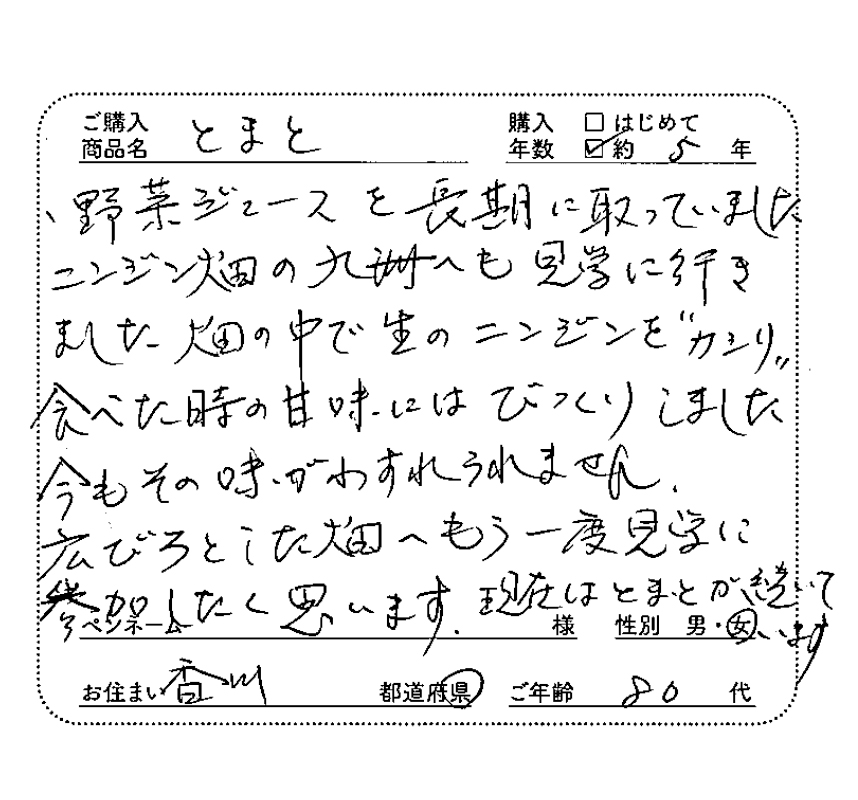 ご購入商品名 とまと 購入年数 □はじめて ☑約 5 年
、野菜ジュースを長期に取っていました
ニンジン畑の九州へも見学に行き
ました 畑の中で生のニンジンを"カシリ"
食べた時の甘味にはびっくりしました
今もその味がわすれられません.
広びろとした畑へもう一度見学に
参加したく思います. 現在はとまとが続いて
います
ペンネーム 様 性別 男・女
お住まい 香川 都道府県 ご年齢 80 代